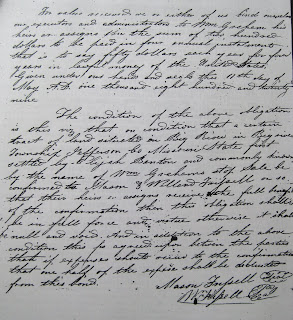 For value received we or either of us bind ourselves
our executors and administrators to Wm Graham his
heirs or assigns in the sum of two hundred
dollars to be paid in four annual installments
that is to say fifty dollars each year for four
years in lawful money of the United States
Given under our hands and seals this 11th day of
May A.D. one thousand eight hundred and thirty
nine
The condition of the above obligation
is this viz, that on condition that a certain
tract of land situated on Big River in Big river
Township Jefferson Co Missouri State first
settled by Elijah Benton and commonly known
by the name of Wm Grahams place shall be
confirmed to Mason & Willard Frissell or so
that their heirs or assigns receive take full benefit
of the confirmation then this obligation shall
be in full force and virtue otherwise it shall
be null and void. And in addition to the above
condition it is agreed upon between the parties
that if expenses should occur to the confirmation
that one half of the expense shall be deducted
from this bond.
Mason Frissell Seal
W Frissell Seal